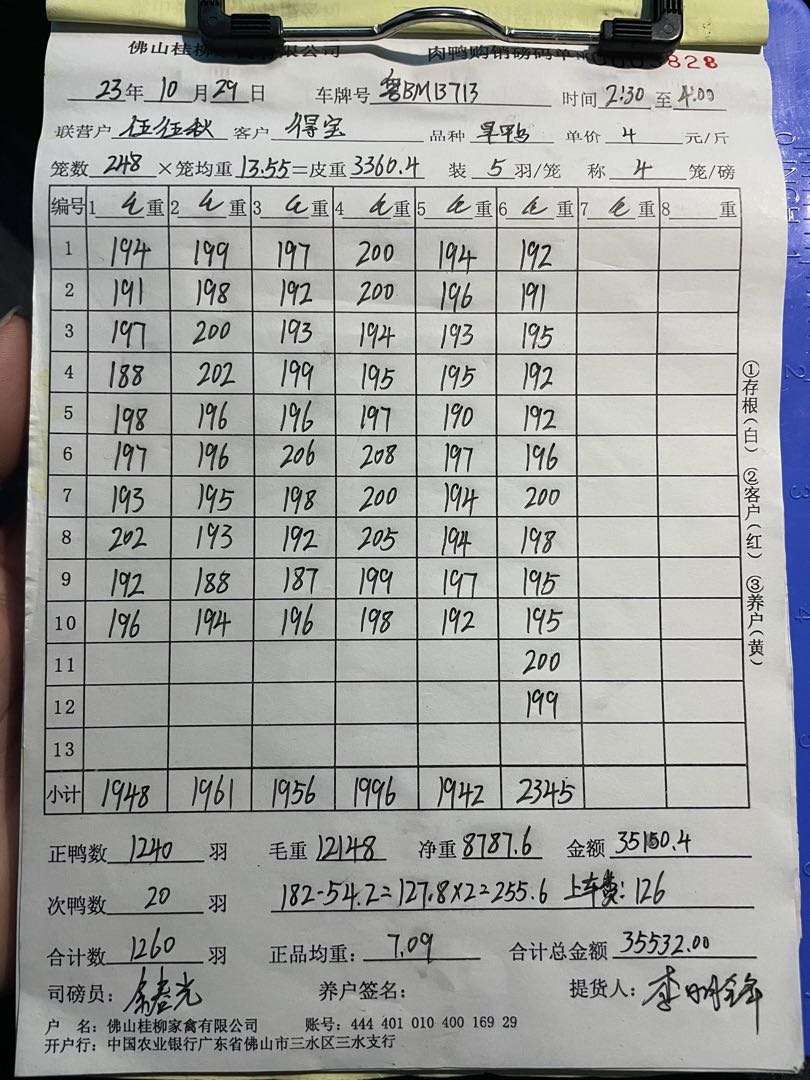 佛山桂柳家禽有限公司 肉鸭购销磅码单 3828
23年10月29日 车牌号 粤BM13713 时间 2:30 至 4:00
联营户 伍伍秋 客户 得宝 品种 旱鸭 单价 4 元/斤
笼数 248 ×笼均重 13.55 =皮重 3360.4 装 5 羽/笼 称 4 笼/磅
编号 1 毛重 2 毛重 3 毛重 4 毛重 5 毛重 6 毛重 7 毛重 8 重
1 194 199 197 200 194 192
2 191 198 192 200 196 191
3 197 200 193 194 193 195
4 188 202 199 195 195 192
5 198 196 196 197 190 192
6 197 196 206 208 197 196
7 193 195 198 200 194 200
8 202 193 192 205 194 198
9 192 188 187 199 197 195
10 196 194 196 198 192 195
11 200
12 199
13
小计 1948 1961 1956 1996 1942 2345
正鸭数 1240 羽 毛重 12148 净重 8787.6 金额 35150.4
次鸭数 20 羽 182-54.2=127.8×2=255.6 上车费:126
合计数 1260 羽 正品均重: 7.09 合计总金额 35532.00
司磅员: 养户签名: 提货人:
户 名: 佛山桂柳家禽有限公司 账号: 444 401 010 400 169 29
开户行: 中国农业银行广东省佛山市三水区三水支行
①存根(白) ②客户(红) ③养户(黄)